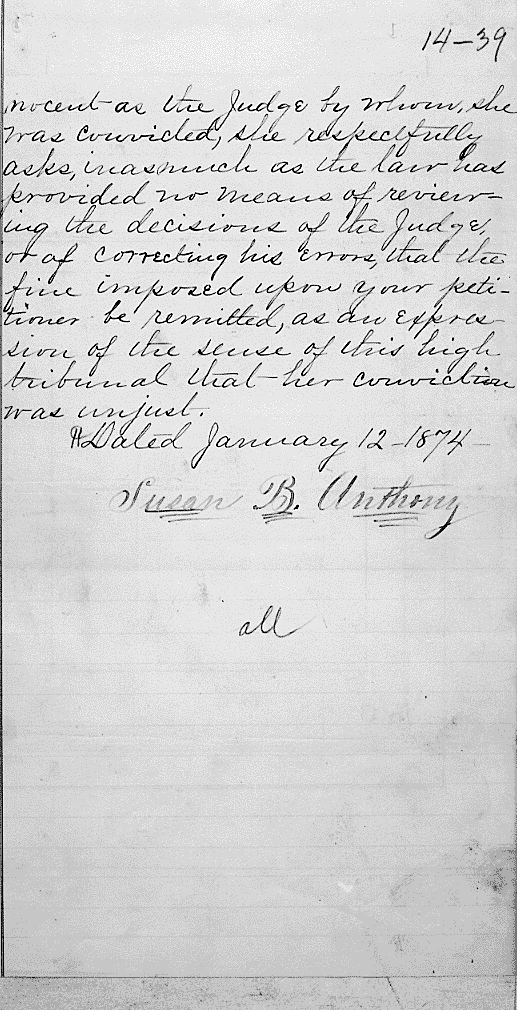 14-39
nocent as the Judge by whom, she
was convicted, she respectfully
asks, inasmuch as the law has
provided no means of review-
ing the decisions of the Judge,
or of correcting his errors, that the
fine imposed upon your peti-
tioner be remitted, as an expres-
sion of the sense of this high
tribunal that her conviction
was unjust.
Dated January 12-1874-
Susan B. Anthony
all